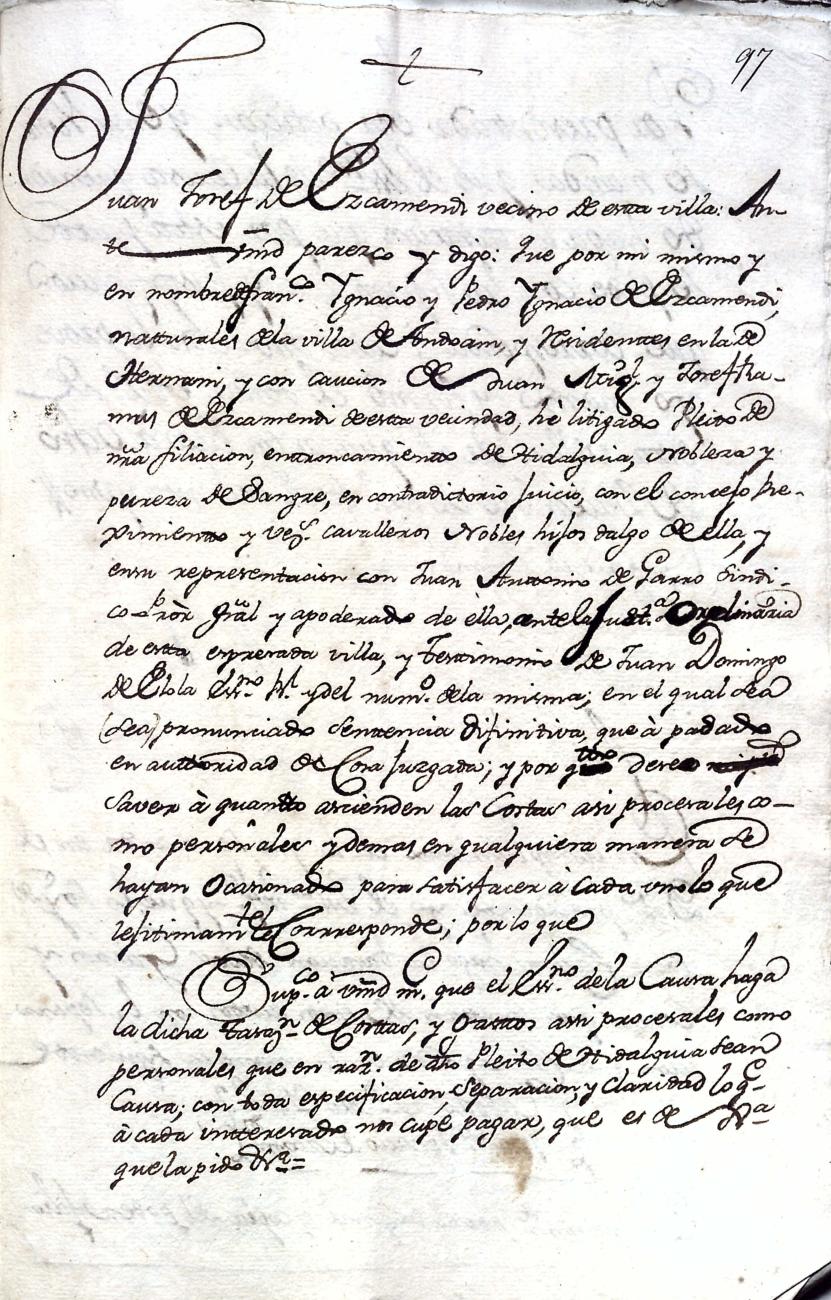 97
Juan Josef de Ezcamendi vecino de esta villa: An-
te vmd parezco y digo: Que por mi mismo y
en nombre de Fran.co Ygnacio y Pedro Ygnacio de Ezcamendi,
natturales de la villa de Andoain, y Residenttes en la de
Hernani, y con caucion de Juan Mig.l y Josef Ra-
mus de Ezcamendi de estta vecindad, hè litigado Pleito de
nrã filiacion, enttroncamientto de Hidalguia, Nobleza y
pureza de Sangre, en contradictorio Juicio, con el concejo Re-
ximientto y vez.s cavalleros Nobles hijos dalgo de ella, y
en su representacion con Juan Anttonio de Garro Sindi-
co Prõr Grãl y apoderado de ella, ante la Just.a Ordinaria
de estta expresada villa, y Testimonio de Juan Domingo
de Elola Ess.no Rl. y del num.o de la misma; en el qual se à
(se à) pronunciado Sentencia difinitiva, que à pasado
en auttoridad de Cosa Juzgada; y por q.tto deseo
saver à quantto ascienden las Costas asi procesales co-
mo personales y demas en qualquiera manera se
hayan Ocasionado para satisfacer à Cada uno lo que
lejitimam.te le Corrresponde; por lo que
Sup.co à vmd m. que el Ess.no de la Causa haga
la dicha tasaz.n de Costtas, y Gasttos asi procesales como
personales que en raz.n de dho Pleito de Hidalguia sean
Causa; con toda especificacion, Separacion, y claridad lo q.e
à cada intteresado nos cupe pagar, que es de Jus.a
que la pido &.a =